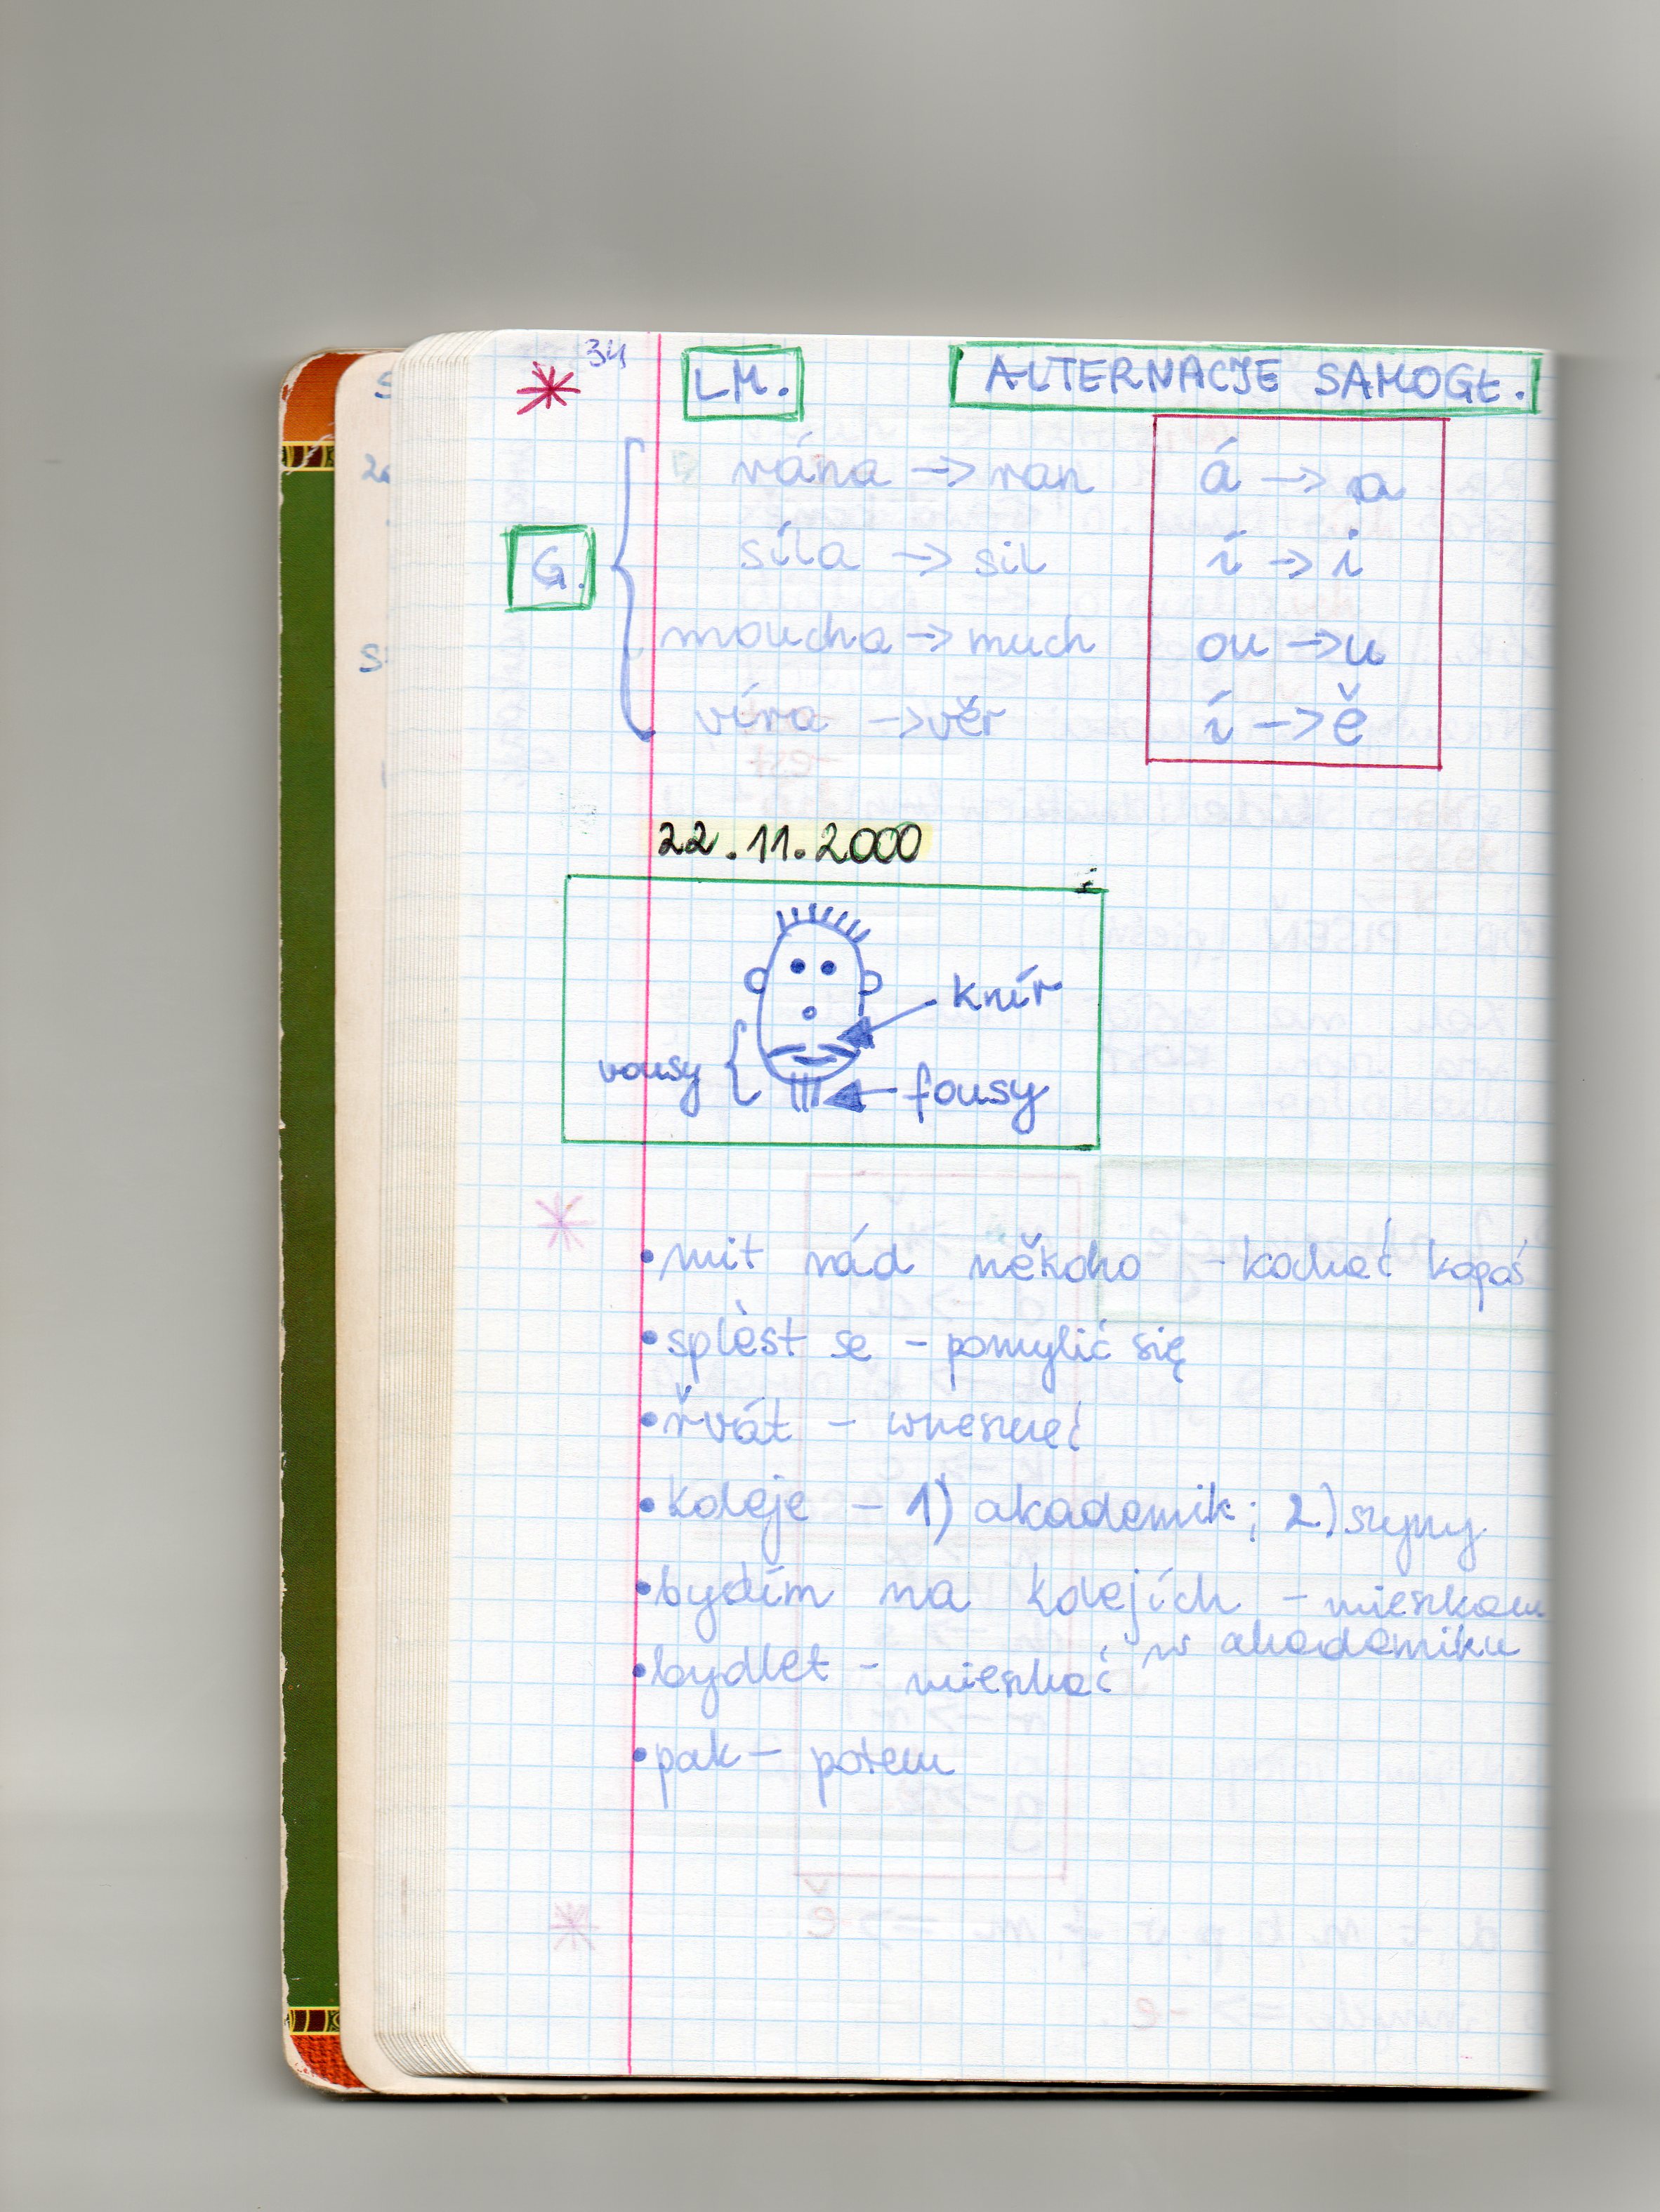 34
LM. ALTERNACJE SAMOGŁ.
rána -> ran á -> a
síla -> sil í -> i
G.
moucha -> much ou -> u
víra -> věr í -> ě
22.11.2000
knír
vousy
fousy
• mit rád někoho - kochać kogoś
• splést se - pomylić się
• řvát - wrzeszczeć
• koleje - 1) akademik; 2) szyny
• bydlím na kolejích - mieszkam
w akademiku
• bydlet - mieszkać
• pak - potem